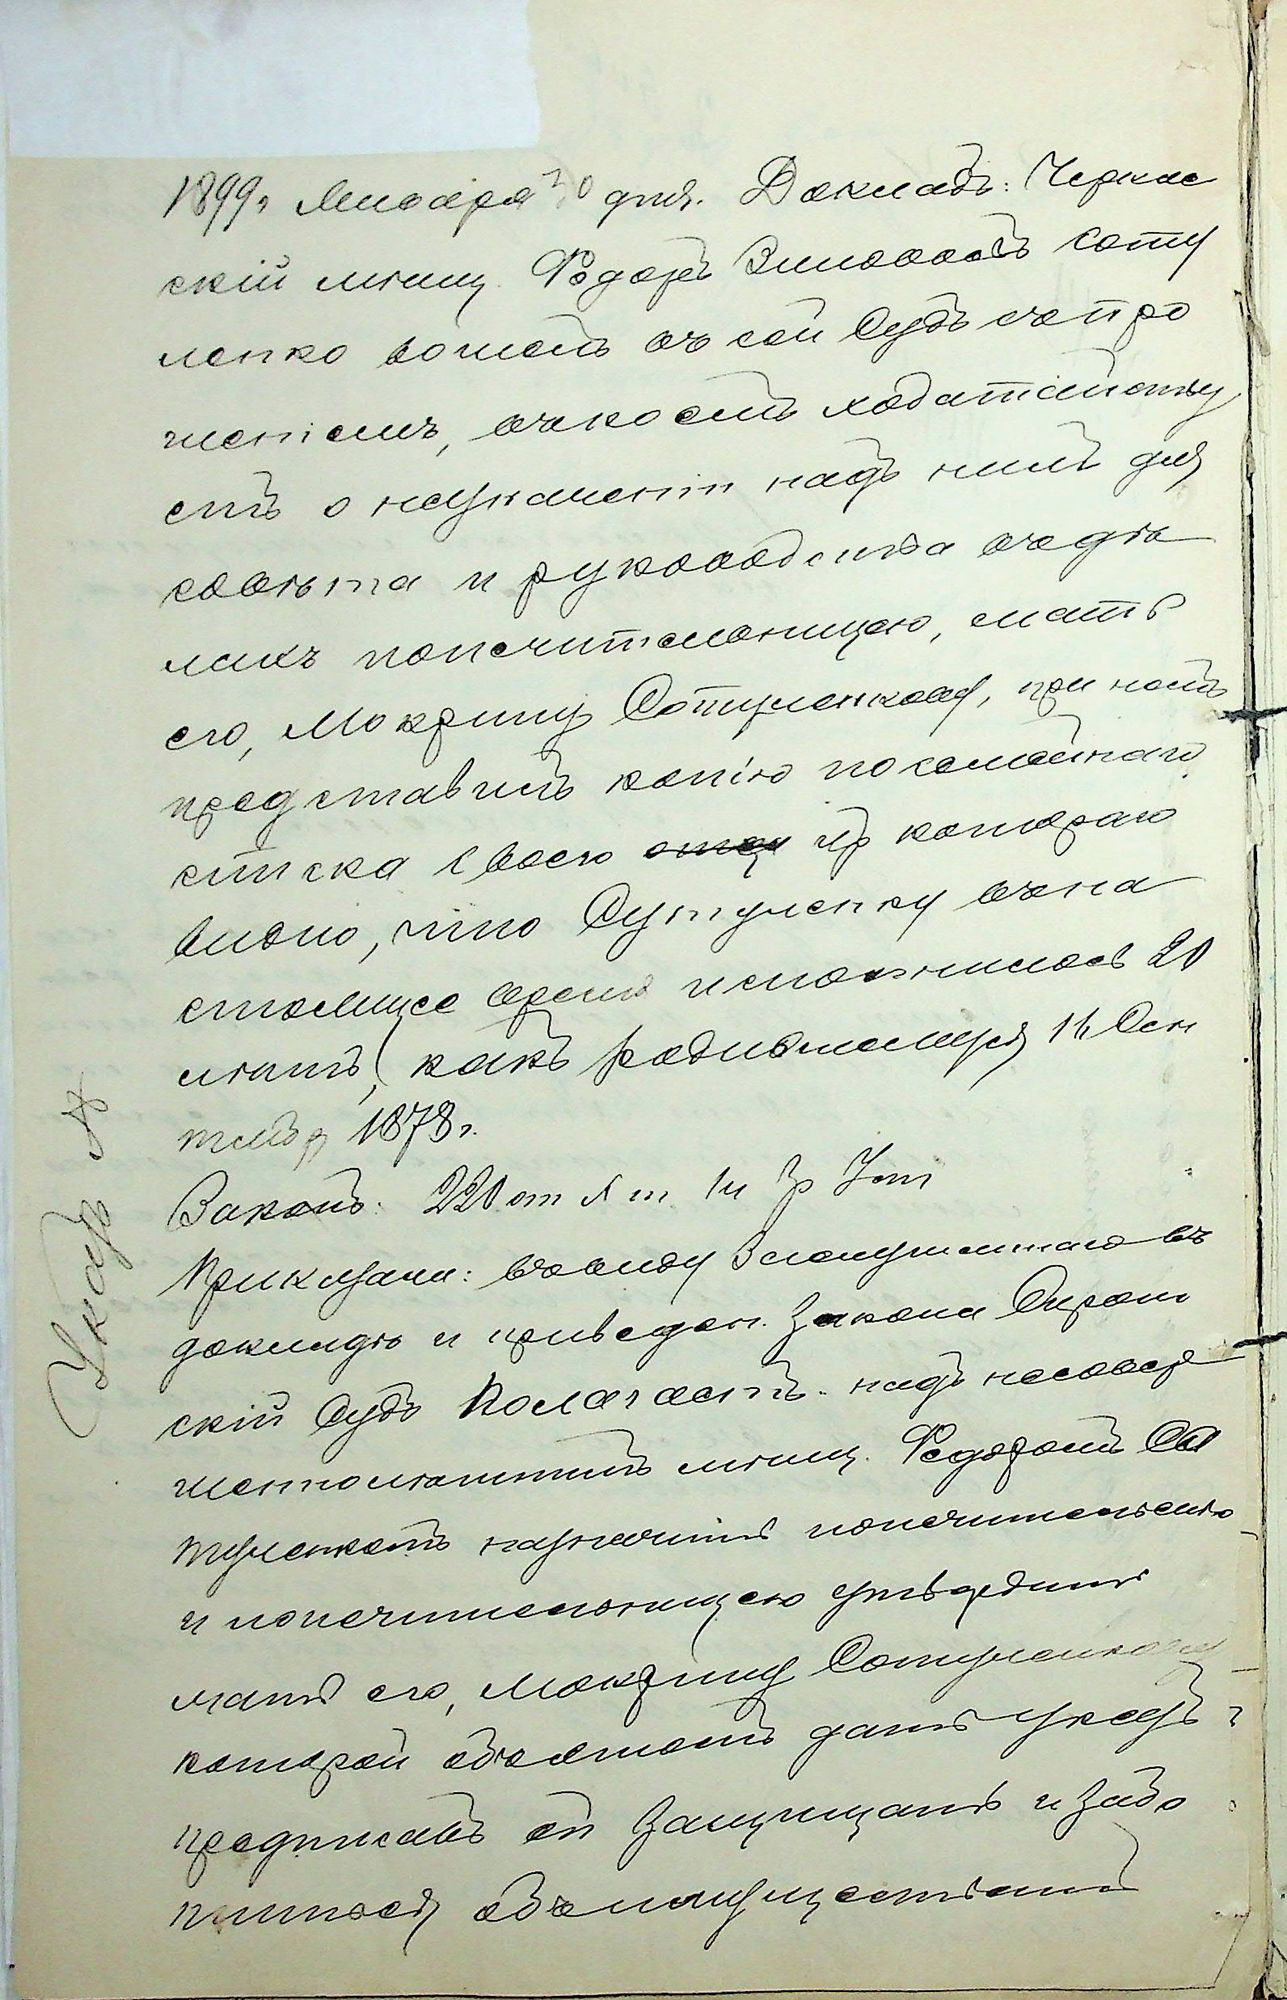 1899 г. Января 30 дня. Докладъ: Черкас
скій мѣщ. Ѳедоръ Зиновьевъ Соту
ленко вошелъ въ сей Судъ съ про
шеніемъ, въ коемъ ходатайству
етъ о назначеніи надъ нимъ для
совѣта и руководства въ дѣ
лахъ попечительницею, мать
его, Мокрину Сотуленкову, при чемъ
представилъ копію посемейнаго
списка своего отца из котораго
видно, что Сутуленку въ на
стоящее время исполнилось 20
лѣтъ, какъ родившемуся 14 Сен
тября 1878 г.
Законъ: 220 ст. X т. 1 ч. Зр Уст
Приказали: Ввиду Заслушаннаго въ
докладѣ и приведен. закона Сирот
скій Судъ Полагаетъ: надъ несовер
шеннолѣтнимъ мѣщ. Ѳедоромъ Со
туленкомъ назначить попечительство
и попечительницею утвердить
мать его, Мокрину Сотуленкову
которой объ этомъ дать указъ и
предписать ей защищать и забо
титься объ имуществѣ
Указъ